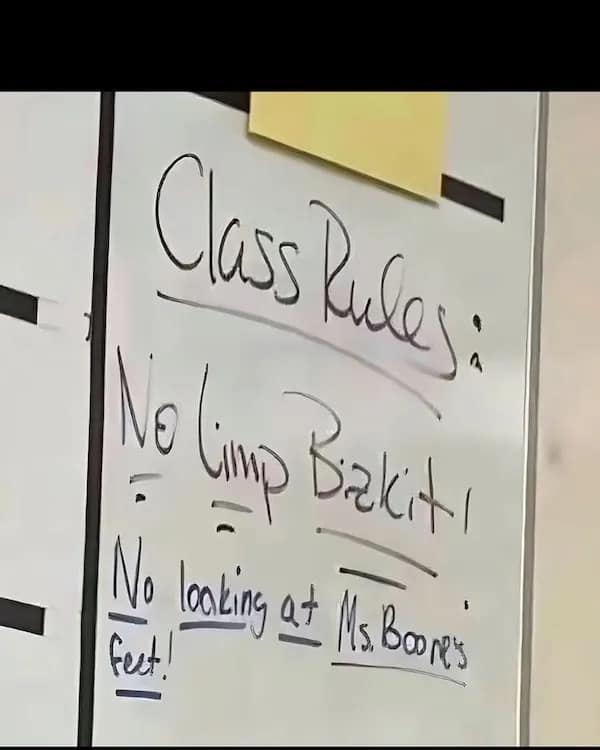 Class Rules:
No Limp Bizkit!
No looking at Ms. Boone's
feet!